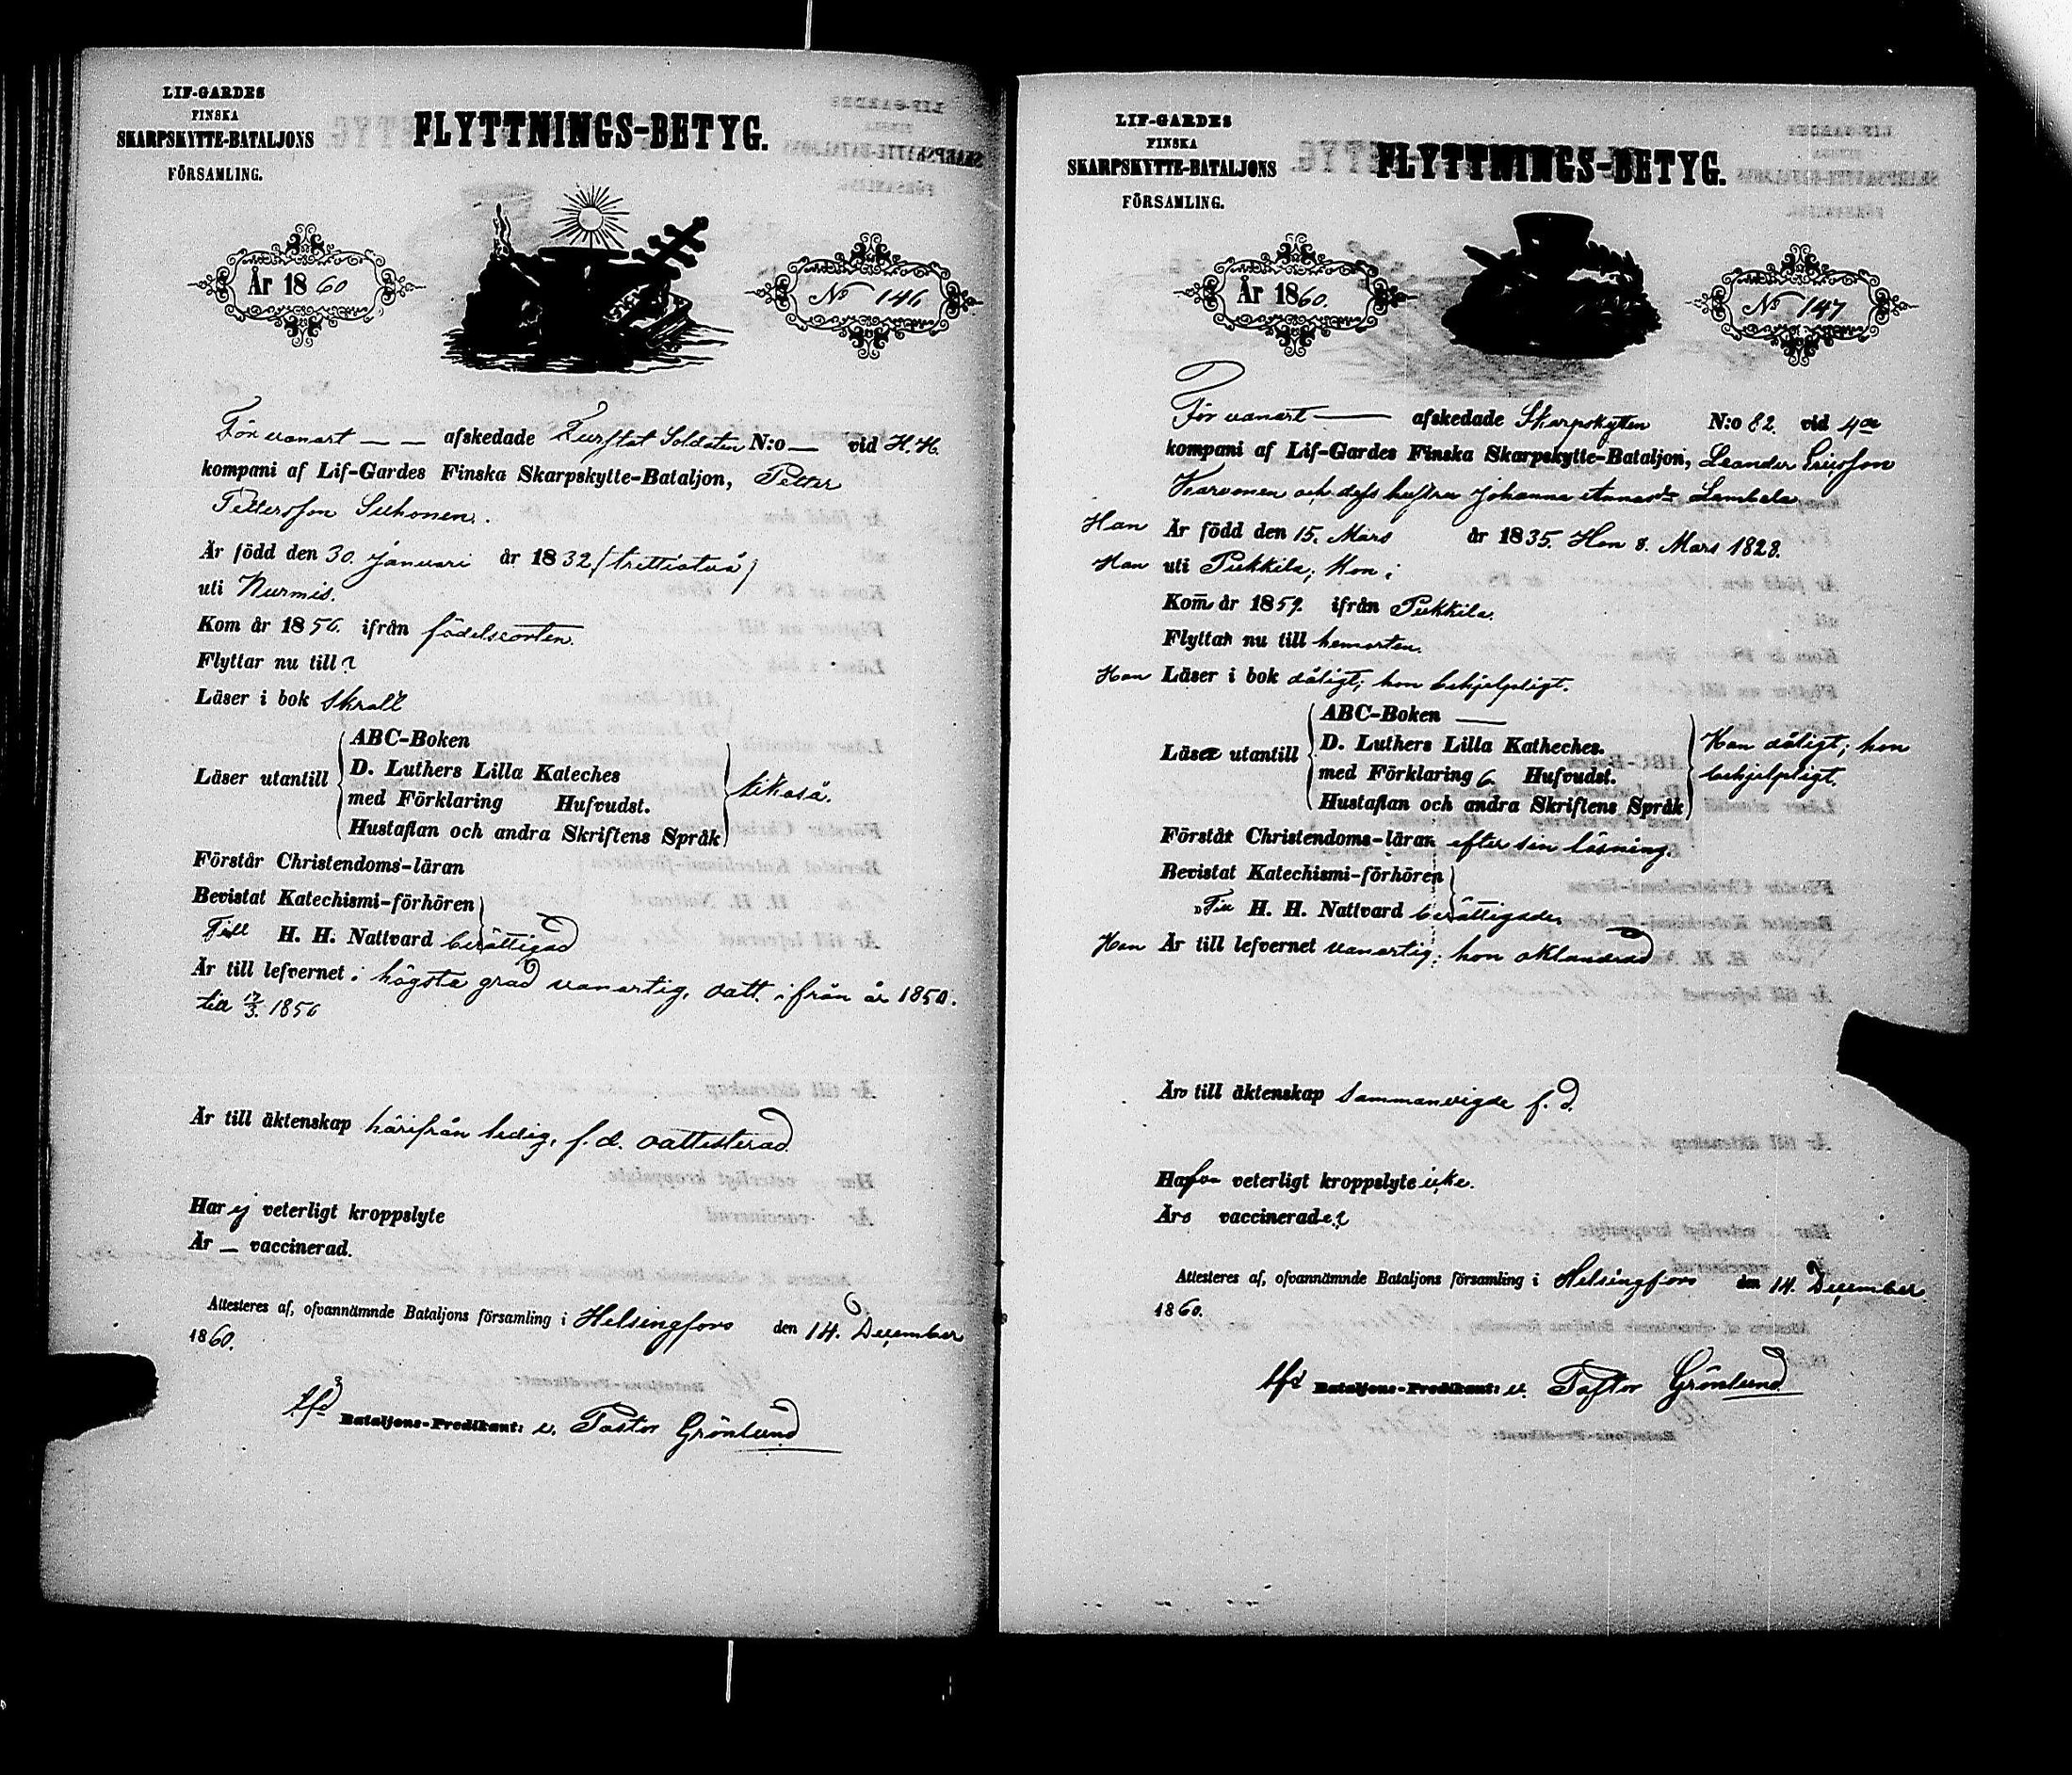 LIF-GARDES
FINSKA
SKARPSKYTTE-BATALJONS
FÖRSAMLING.
FLYTTNINGS-BETYG.
År 1860
No 146
För vanart — — afskedade Furstat Soldaten N:o — vid H. H.
kompani af Lif-Gardes Finska Skarpskytte-Bataljon, Petter
Pettersson Suhonen.
Är född den 30. Januari år 1832 (trettiotvå)
uti Nurmis.
Kom år 1856. ifrån födelseorten.
Flyttar nu till ?
Läser i bok skralt
Läser utantill
ABC-Boken
D. Luthers Lilla Kateches
med Förklaring Hufvudst.
Hustaflan och andra Skriftens Språk
likaså.
Förstår Christendoms-läran
Bevistat Katechismi-förhören
Till H. H. Nattvard berättigad
Är till lefvernet i högsta grad vanartig, oatt. ifrån år 1850.
till 17/3. 1856
Är till äktenskap härifrån ledig, f. d. oattesterad
Har ej veterligt kroppslyte
Är — vaccinerad.
Attesteres af, ofvannämnde Bataljons församling i Helsingfors den 14. December
1860.
tfd Bataljons-Predikant: v. Pastor Grönlund
LIF-GARDES
FINSKA
SKARPSKYTTE-BATALJONS
FÖRSAMLING.
FLYTTNINGS-BETYG.
År 1860.
No 147
För vanart — afskedade Skarpskytten N:o 82. vid 4de
kompani af Lif-Gardes Finska Skarpskytte-Bataljon, Leander Ericsson
Karvonen och dess hustru Johanna Annasdr Lambela
Han Är född den 15. Mars år 1835. Hon 8. Mars 1828.
Han uti Pukkila; Hon i
Kom år 1859. ifrån Pukkila.
Flyttar nu till hemorten.
Han Läser i bok dåligt; hon behjelpligt.
Läser utantill
ABC-Boken —
D. Luthers Lilla Katheches.
med Förklaring 6 Hufvudst.
Hustaflan och andra Skriftens Språk
Han dåligt; hon
behjelpligt.
Förstår Christendoms-läran efter sin läsning.
Bevistat Katechismi-förhören
Till H. H. Nattvard berättigade.
Han Är till lefvernet vanartig; hon oklandrad
Äro till äktenskap sammanvigde f. d.
Hafva veterligt kroppslyte icke.
Äro vaccinerade ?
Attesteres af, ofvannämnde Bataljons församling i Helsingfors den 14. December
1860.
tfd Bataljons-Predikant: v. Pastor Grönlund